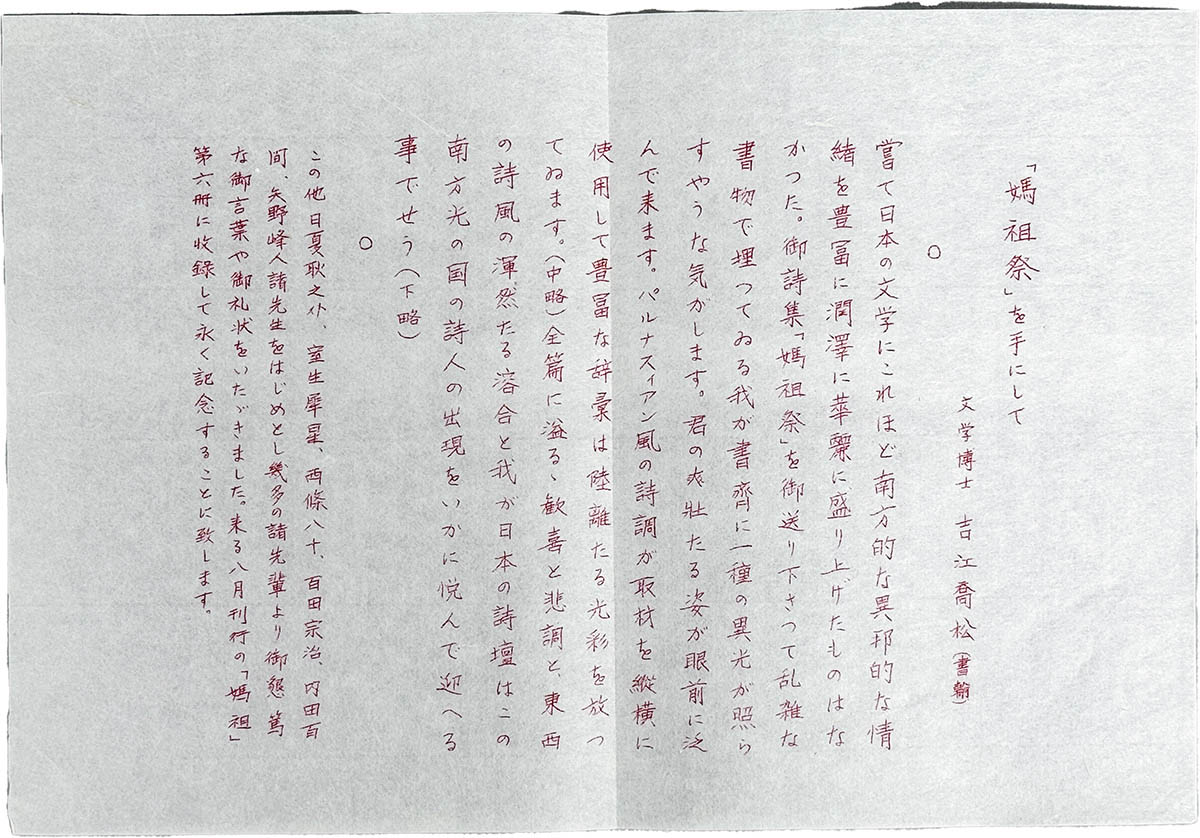 「媽祖祭」を手にして
文学博士　吉江喬松（書翰）
○
嘗て日本の文学にこれほど南方的な異邦的な情
緒を豊富に潤澤に華麗に盛り上げたものはな
かつた。御詩集「媽祖祭」を御送り下さつて乱雑な
書物で埋つてゐる我が書齊に一種の異光が照ら
すやうな気がします。君の爽壮たる姿が眼前に泛
んで来ます。パルナスィアン風の詩調が取材を縦横に
使用して豊冨な辞彙は陸離たる光彩を放つ
てゐます。（中略）全篇に溢るゝ歓喜と悲調と、東西
の詩風の渾然たる溶合と我が日本の詩壇はこの
南方光の国の詩人の出現をいかに悦んで迎へる
事でせう（下略）
○
この他日夏耿之介、室生犀星、西條八十、百田宗治、内田百
間、矢野峰人諸先生をはじめとし幾多の諸先輩より御懇篤
な御言葉や御礼状をいたゞきました。来る八月刊行の「媽祖」
第六冊に收録して永く記念することに致します。